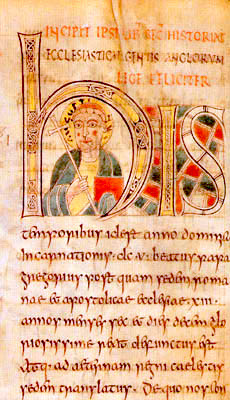 INCIPIT IPSIUS SECD HISTORIAE
ECCLESIASTICAE GENTIS ANGLORUM
LEGE FELICITER
his
temporibus id est anno domini
Incarnationis. dc.v. beatus papa
gregorius post quam sedem roma
nae et apostolicae ecclesiae .xiii.
annos menses sex et dies decem glo
riosissime rexit defunctus est
Atq: ad aeternam regni caelestis
sedem translatus. De quo nos